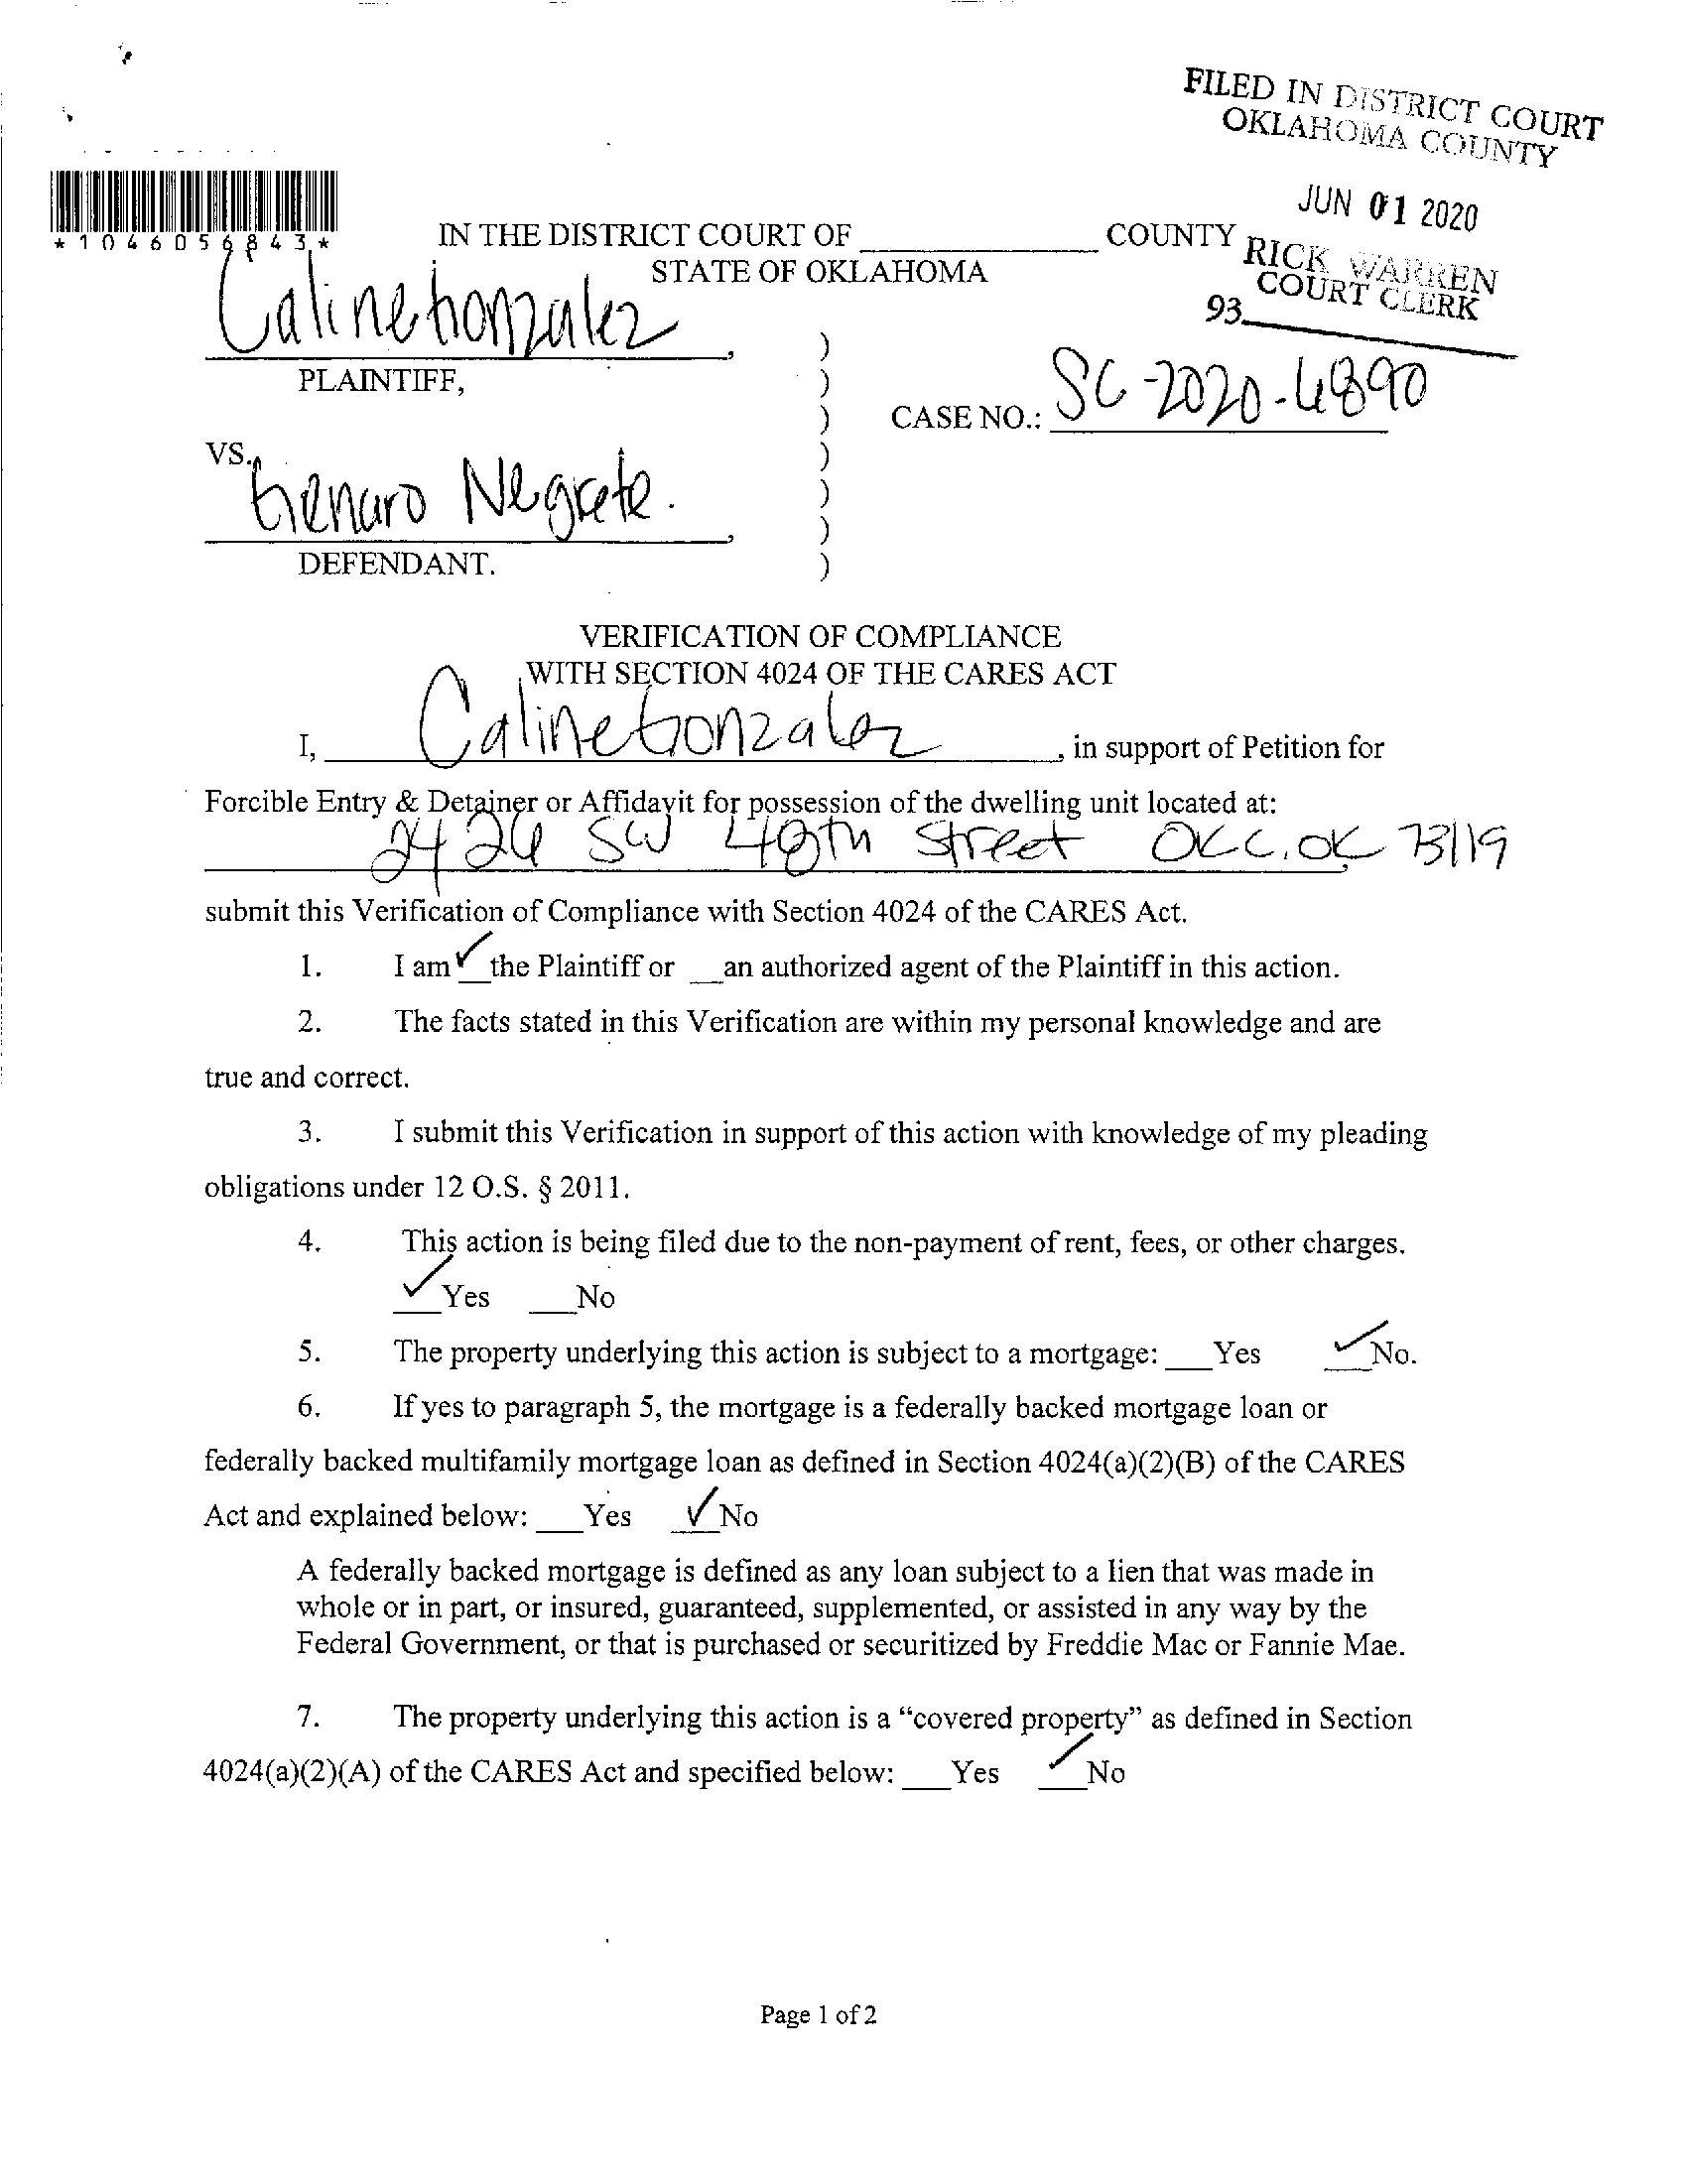 FILED IN DISTRICT COURT
OKLAHOMA COUNTY
JUN 01 2020
RICK WARREN
COURT CLERK
93
*1046056843*
IN THE DISTRICT COURT OF ______________ COUNTY
STATE OF OKLAHOMA
Caline Gonzalez,
PLAINTIFF,
CASE NO.: SC-2020-6890
VS.
Genaro Negrete.,
DEFENDANT.
)
)
)
)
)
)
)
VERIFICATION OF COMPLIANCE
WITH SECTION 4024 OF THE CARES ACT
I, Caline Gonzalez, in support of Petition for
Forcible Entry & Detainer or Affidavit for possession of the dwelling unit located at:
SW 48th Street OKC, OK 73119,
submit this Verification of Compliance with Section 4024 of the CARES Act.
1. I am ✓ the Plaintiff or __an authorized agent of the Plaintiff in this action.
2. The facts stated in this Verification are within my personal knowledge and are
true and correct.
3. I submit this Verification in support of this action with knowledge of my pleading
obligations under 12 O.S. § 2011.
4. This action is being filed due to the non-payment of rent, fees, or other charges.
✓ Yes ___No
5. The property underlying this action is subject to a mortgage: ___Yes ✓ No.
6. If yes to paragraph 5, the mortgage is a federally backed mortgage loan or
federally backed multifamily mortgage loan as defined in Section 4024(a)(2)(B) of the CARES
Act and explained below: ___Yes ✓ No
A federally backed mortgage is defined as any loan subject to a lien that was made in
whole or in part, or insured, guaranteed, supplemented, or assisted in any way by the
Federal Government, or that is purchased or securitized by Freddie Mac or Fannie Mae.
7. The property underlying this action is a “covered property” as defined in Section
4024(a)(2)(A) of the CARES Act and specified below: ___Yes ✓ No
Page 1 of 2